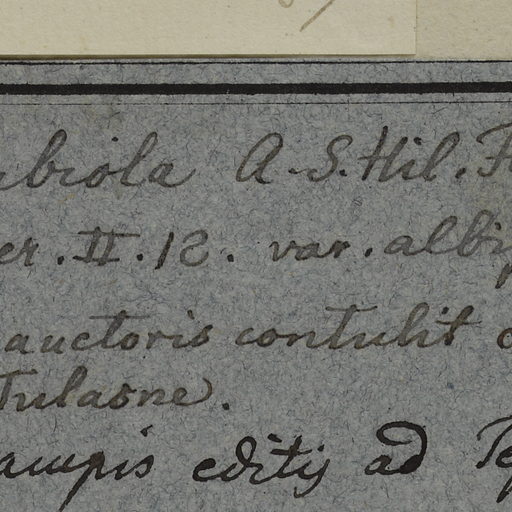 abiola A. S. Hil. F
er. II. 12. var. albi
auctoris contulit
Tulasne.
ampis editis ad Te